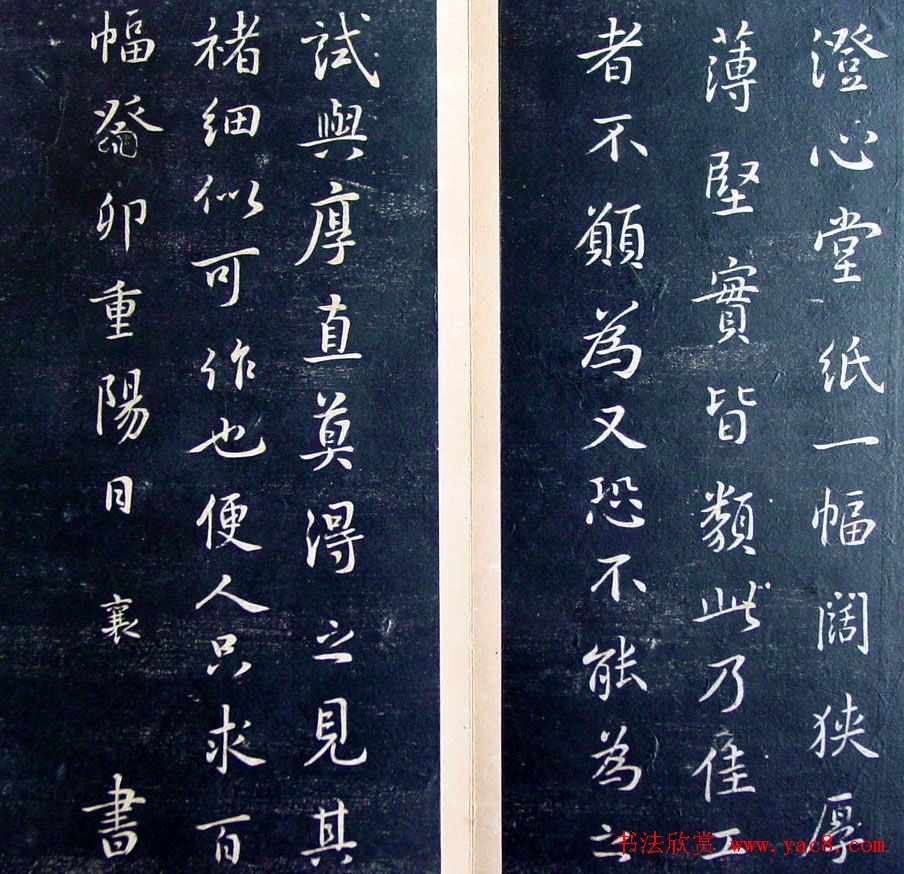 澄心堂紙一幅闊狹厚
薄堅實皆類此乃佳工
者不願為又恐不能為之
試與厚直莫得之見其
褚細似可作也便人只求百
幅癸卯重陽日 襄 書
书法欣赏 www.yac8.com